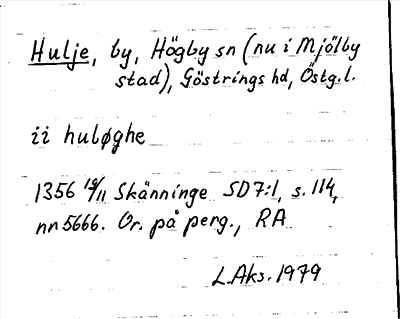 Hulje, by, Högby sn (nu i Mjölby
stad), Göstrings hd, Östg.l.
ii huløghe
1356 16/11 Skänninge SD7:1, s. 114,
nn 5666. Or. på perg., RA
L.Aks. 1979